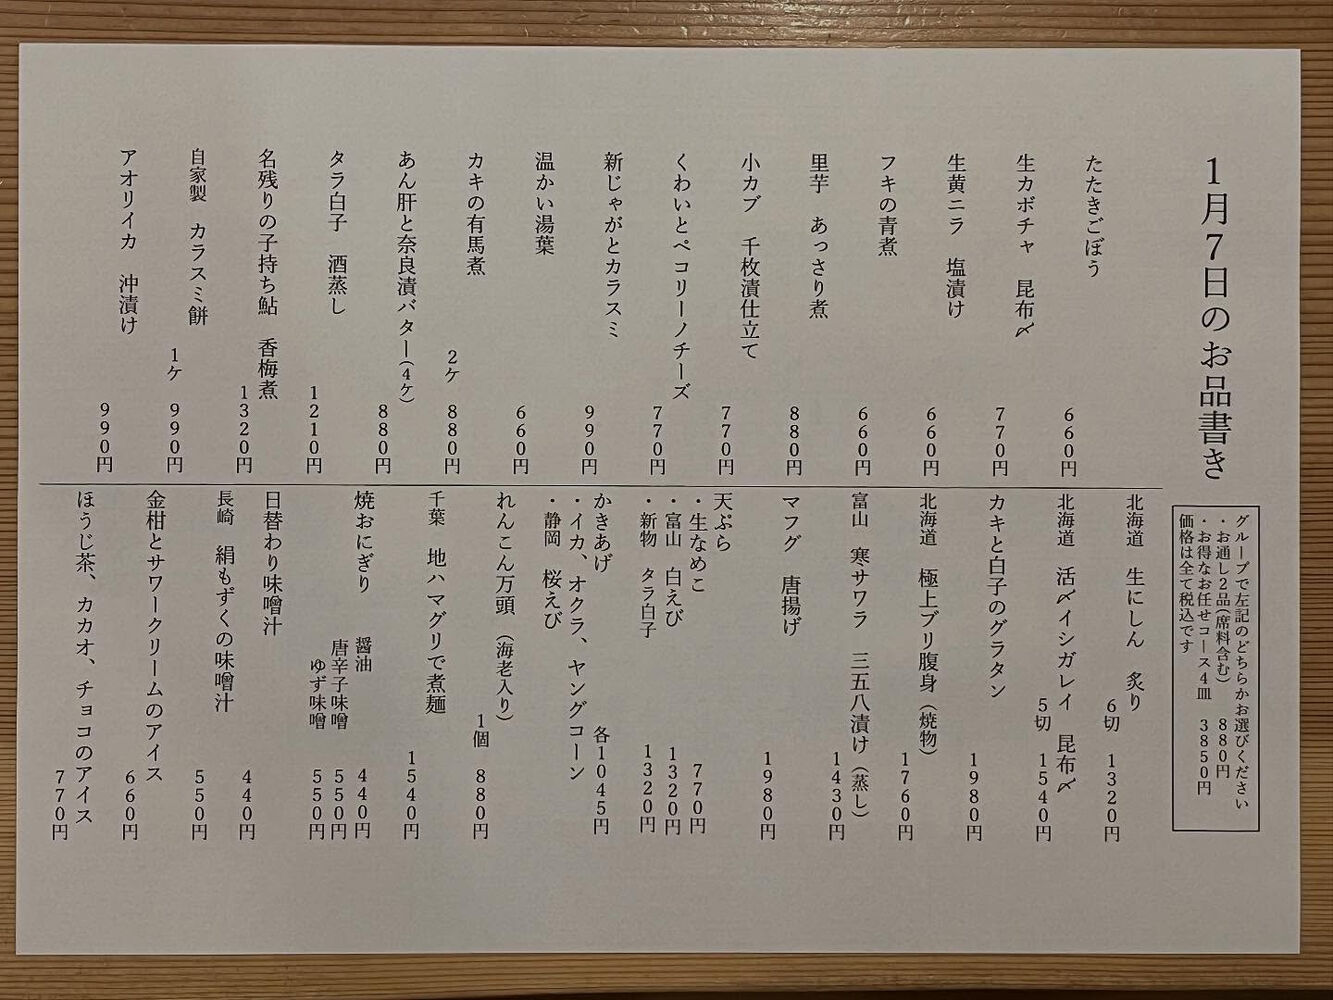 1月7日のお品書き
グループで左記のどちらかお選びください
・お通し2品(席料含む) 880円
・お得なお任せコース4皿 3850円
価格は全て税込です
たたきごぼう 660円
生カボチャ 昆布〆 770円
生黄ニラ 塩漬け 660円
フキの青煮 660円
里芋 あっさり煮 880円
小カブ 千枚漬仕立て 770円
くわいとペコリーノチーズ 770円
新じゃがとカラスミ 990円
温かい湯葉 660円
カキの有馬煮 2ケ 880円
あん肝と奈良漬バター(4ケ) 880円
タラ白子 酒蒸し 1210円
名残りの子持ち鮎 香梅煮 1320円
自家製 カラスミ餅 1ケ 990円
アオリイカ 沖漬け 990円
北海道 生にしん 炙り 6切 1320円
北海道 活〆イシガレイ 昆布〆 5切 1540円
カキと白子のグラタン 1980円
北海道 極上ブリ腹身(焼物) 1760円
富山 寒サワラ 三五八漬け(蒸し) 1430円
マフグ 唐揚げ 1980円
天ぷら
・生なめこ 770円
・富山 白えび 1320円
・新物 タラ白子 1320円
かきあげ 各1045円
・イカ、オクラ、ヤングコーン
・静岡 桜えび
れんこん万頭(海老入り) 1個 880円
千葉 地ハマグリで煮麺 1540円
焼おにぎり 醤油 440円
唐辛子味噌 550円
ゆず味噌 550円
日替わり味噌汁 440円
長崎 絹もずくの味噌汁 550円
金柑とサワークリームのアイス 660円
ほうじ茶、カカオ、チョコのアイス 770円